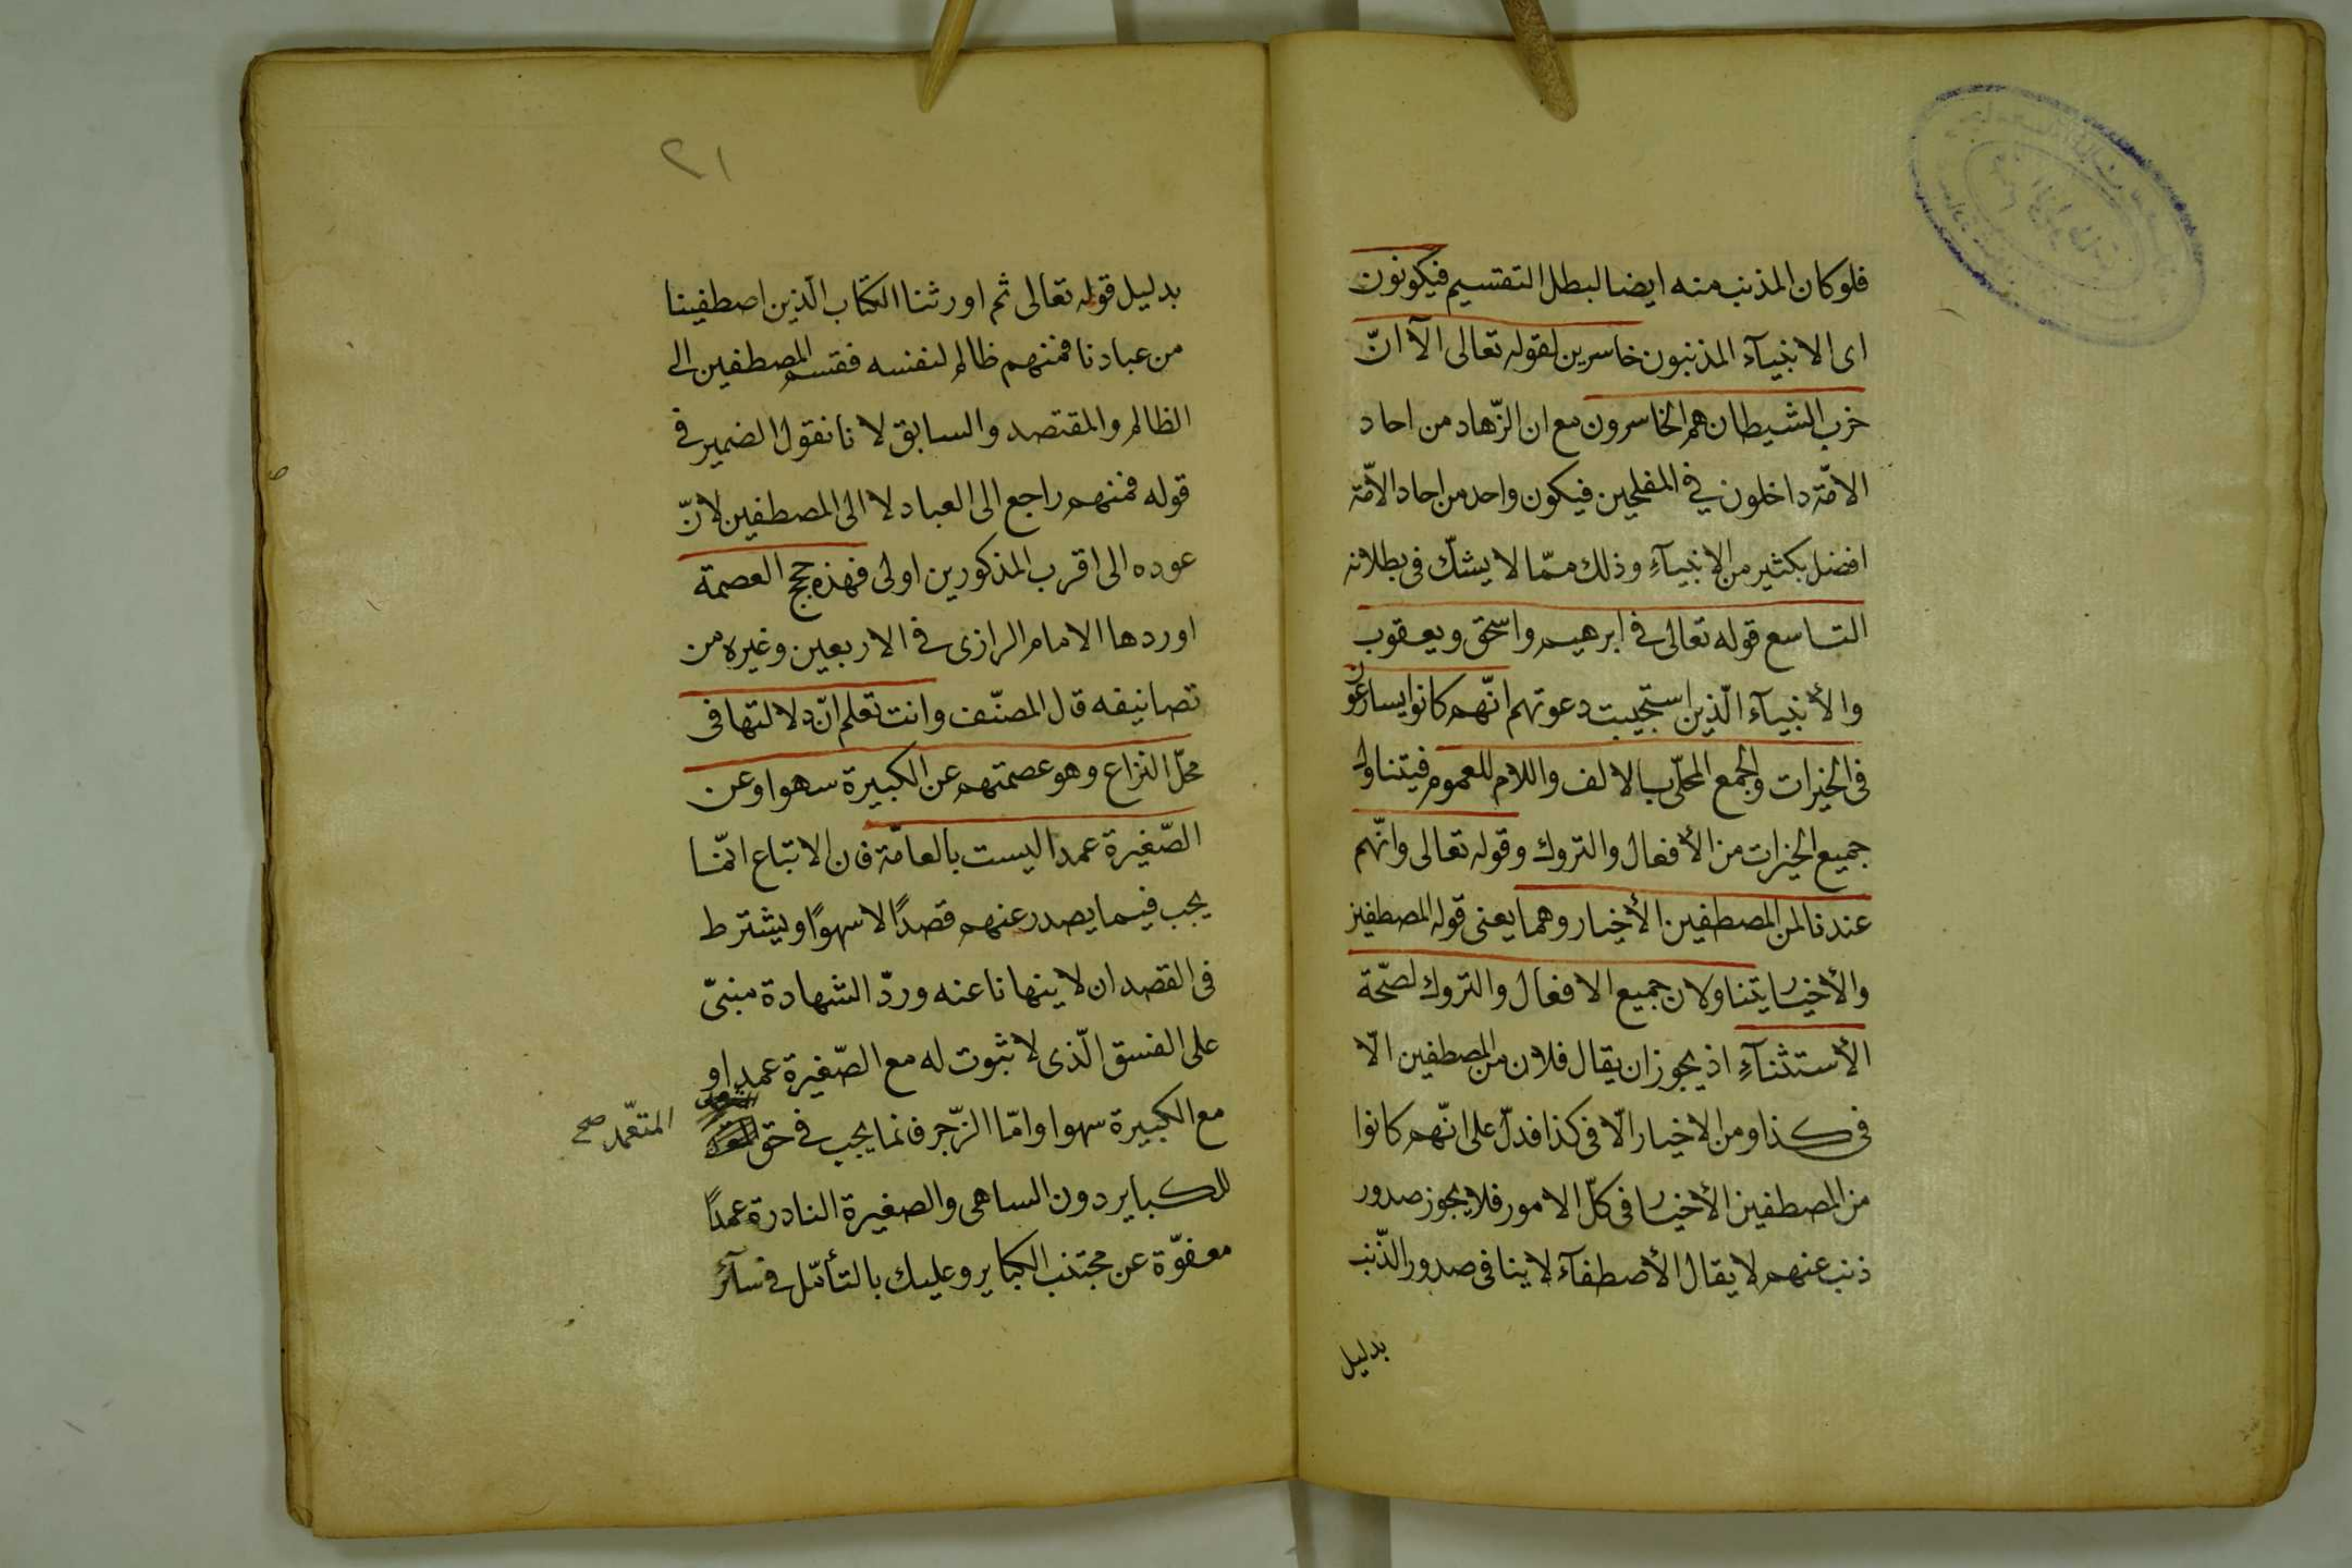 فلو كان المذنب منه ايضا لبطل التقسيم فيكونون
اى الانبيآء المذنبون خاسرين لقوله تعالى الآ انّ
حزب الشيطان هم الخاسرون مع ان الزّهاد من احاد
الامّة داخلون في المفلحين فيكون واحد من احاد الامّة
افضل بكثير من الانبيآءِ وذلك ممّا لا يشكّ فى بطلانه
التاسع قوله تعالى في ابرهيم واسحق ويعقوب
والأنبيآء الّذين استجيبت دعوتهم انّهم كانوا يسارعون
فى الخيرات والجمع المحلّى بالالف واللام للعموم فيتناول
جميع الخيرات من الأفعال والتروك وقوله تعالى وانّهم
عندنا لمن المصطفين الأخيار وهما يعنى قوله المصطفين
والأخيار يتناولان جميع الافعال والتروك لصّحة
الأستثنآءِ اذ يجوز ان يقال فلان من المصطفين الّا
فى كذا ومن الاخيار الّا فى كذا فدلّ على انّهم كانوا
من المصطفين الأخيار فى كلّ الامور فلا يجوز صدور
ذنب عنهم لا يقال الأصطفآء لا ينافى صدور الذّنب
بدليل
٢١
بدليل قوله تعالى ثم اورثنا الكتاب الّذين اصطفينا
من عبادنا فمنهم ظالم لنفسه فقسم المصطفين الى
الظالم والمقتصد والسابق لانا نقول الضمير فى
قوله فمنهم راجع الى العباد لا الى المصطفين لانّ
عوده الى اقرب المذكورين اولى فهذه حجج العصمة
اوردها الامام الرازى في الاربعين وغيره من
تصانيفه قال المصنّف وانت تعلم انّ دلالتها فى
محلّ النزاع وهو عصمتهم عن الكبيرة سهوا وعن
الصّغيرة عمدا ليست بالعامّة فان الاتباع انّما
يجب فيما يصدر عنهم قصدًا لا سهوًا ويشترط
فى القصد ان لا ينهانا عنه وردّ الشهادة مبنىّ
على الفسق الّذى لا ثبوت له مع الصّغيرة عمدا و
مع الكبيرة سهوا وامّا الزّجر فانما يجب في حق
المتعّمد صح
للكباير دون الساهى والصغيرة النادرة عمدًا
معفوّة عن مجتنب الكباير وعليك بالتأمّل فى سآئر